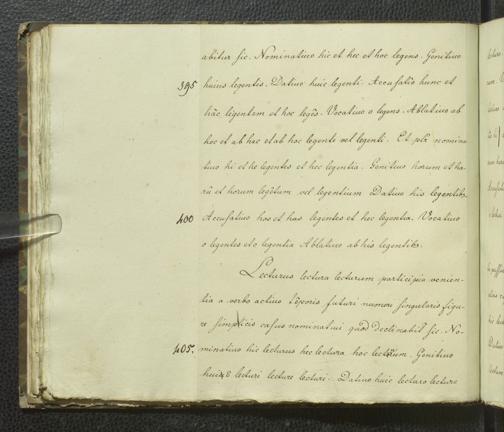 abitur sic. Nominativo hic et hec et hoc legens. Genitivo
395 huius legentis. Dativo huic legenti. Accusatio hunc et
hāc legentem et hoc legēs. Vocativo o legens. Ablativo ab
hoc et ab hac et ab hoc legente vel legenti. Et plr nomina-
tivo hi et he legentes et hec legentia. Genitivo horum et ha-
rū et horum legētum vel legentium Dativo his legentibz
400 Accusativo hos et has legentes et hec legentia. Vocativo
o legentes et o legentia Ablativo ab his legentibz.
Lecturus lectura lecturum participia venien-
tia a verbo activo tēporis futuri numeri singularis figu-
re simplicis casus nominativi quod declinabit' sic. No-
405. minativo hic lecturus hec lectura hoc lecturum. Genitivo
lecturi lecture lecturi. Dativo huic lecturo lecture